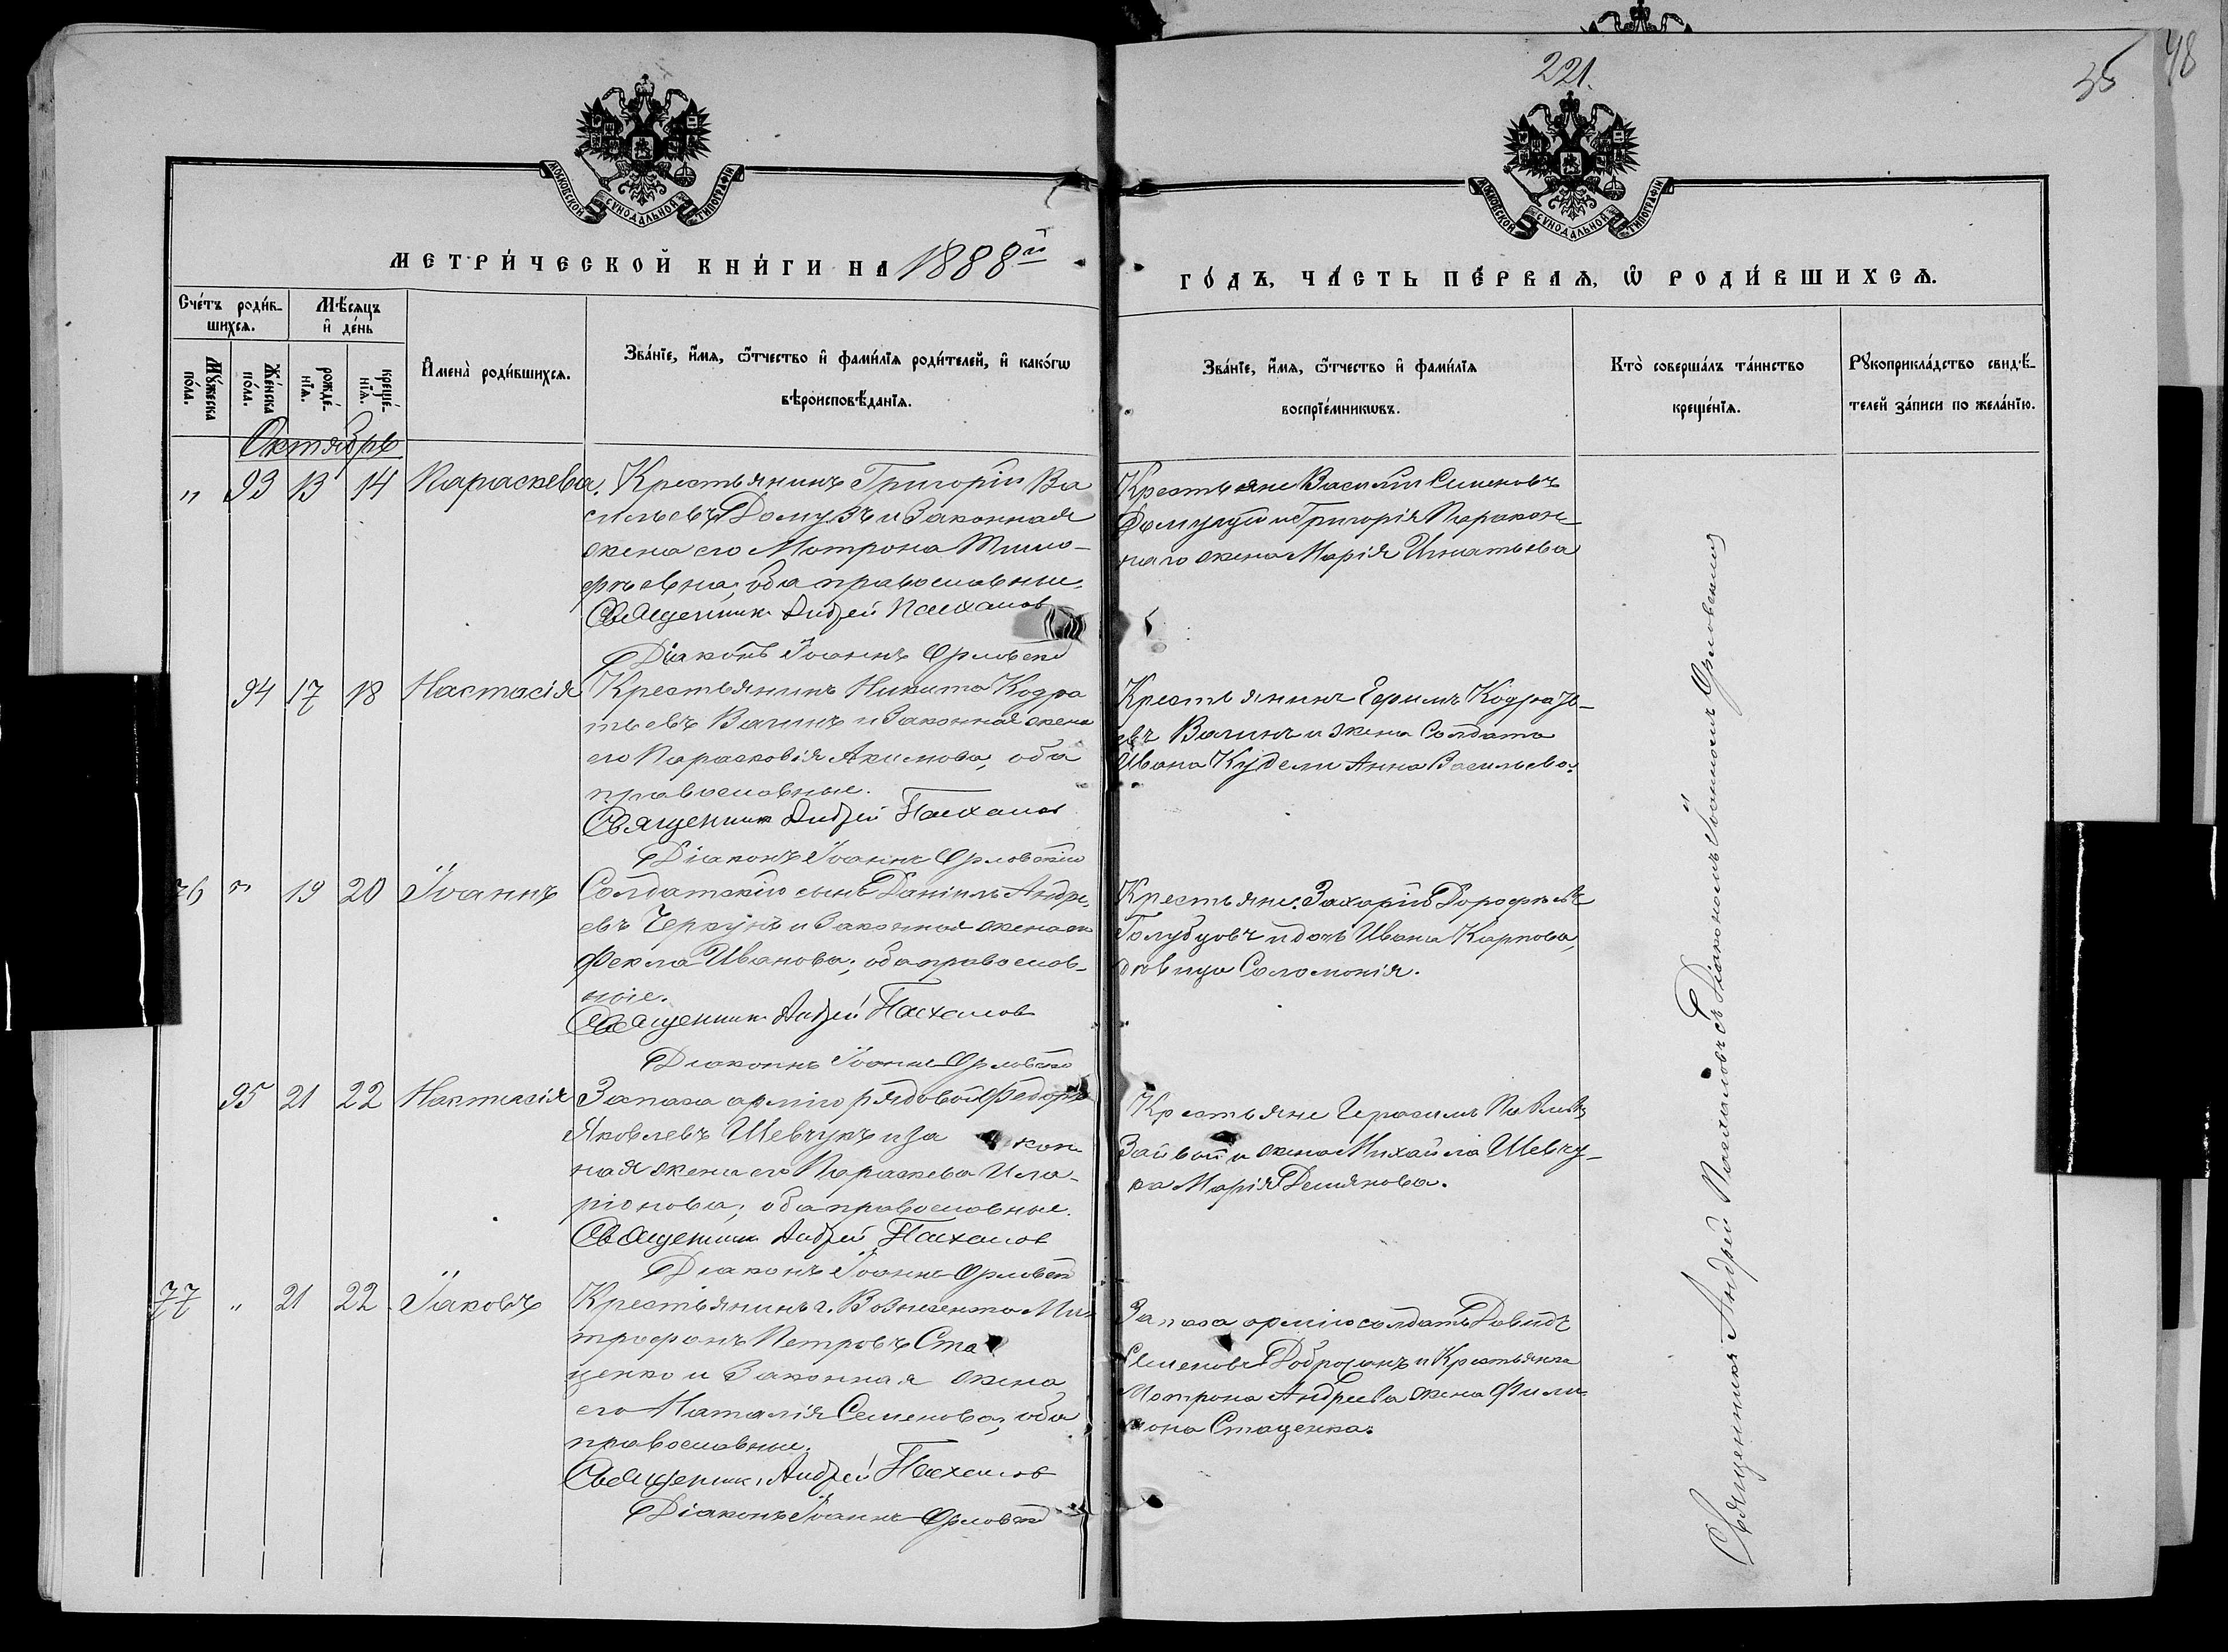 221.
35
48
МОСКОВСКОЙ СУНОДАЛЬНОЙ ТИПОГРАФІИ
МОСКОВСКОЙ СУНОДАЛЬНОЙ ТИПОГРАФІИ
МЕТРИ́ЧЕСКОЙ КНИ́ГИ НА 1888й
ГО́ДЪ, ЧА́СТЬ ПЕ́РВАѦ, Ѽ РОДИ́ВШИХСѦ.
Сче́тъ роди́в-
шихсѧ.
Мѣ́сѧцъ
и҆ де́нь
Мꙋ́жеска
по́ла.
Же́нска
по́ла.
рожде́-
нїѧ.
креще́-
нїѧ.
И҆мена̀ роди́вшихсѧ.
Зва́нїе, и҆́мѧ, ѻ҆́тчество и҆ фами́лїѧ роди́телей, и҆ како́гѡ
вѣроисповѣ́данїѧ.
Зва́нїе, и҆́мѧ, ѻ҆́тчество и҆ фами́лїѧ
воспрїе́мникѡвъ.
Кто̀ соверша́лъ та́инство
креще́нїѧ.
Рꙋкоприкла́дство свидѣ́-
телей за́писи по жела́нїю.
Октябрь
" 93 13 14 Параскева. Крестьянинъ Григорій Ва
сильевъ Домузъ и законная
жена его Мотрона Тимо-
фѣевна, оба православные.
Священник Андрей Пасхалов
Діаконъ Іоаннъ Орловскій
Крестьяне Василій Сименовъ
и Григорія
жена Марія Игнатьева
94 17 18 Настасія Крестьянинъ Никита Кодра
тьевъ Вагинъ и законная жена
его Парасковія Акимова, оба
православные.
Священник Андрей Пасхалов
Діаконъ Іоаннъ Орловскій
Крестьянинъ Ефимъ Кодрать-
евъ Вагинъ и жена Солдата
Ивана Кудели Анна Васильева.
76 " 19 20 Іоаннъ Солдатскій сынъ Даніилъ Андре-
евъ Черкунъ и законная жена его
Фекла Иванова, оба православ-
ные.
Священник Андрей Пасхалов
Діаконъ Іоаннъ Орловскій
Крестьяне: Захарій Дорофѣевъ
Голубцовъ и дочь Ивана Карпова,
дѣвица Соломонія.
95 21 22 Настасія Запаса арміи рядовой Федоръ
Яковлевъ Шевчукъ и за кон
ная жена его Параскева Ила-
ріонова; оба православные.
Священник Андрей Пасхалов
Діаконъ Іоаннъ Орловскій
Крестьяне Герасимъ Павловъ
и жена Михайла Шевчу-
ка Марія Демянова.
77 " 21 22 Іаковъ Крестьянинъ г. Вознесенска Ми-
трофанъ Петровъ Ста
ценко и законная жена
его Наталія Семенова, оба
православные.
Священник Андрей Пасхалов
Діаконъ Іоаннъ Орловскій
Запаса арміи солдатъ Давидъ
Семеновъ и Крестьянка
Мотрона Андреева жена Фили
мона Стаценка.
Священникъ Андрей Пасхаловъ съ Діакономъ Іоанномъ Орловскимъ